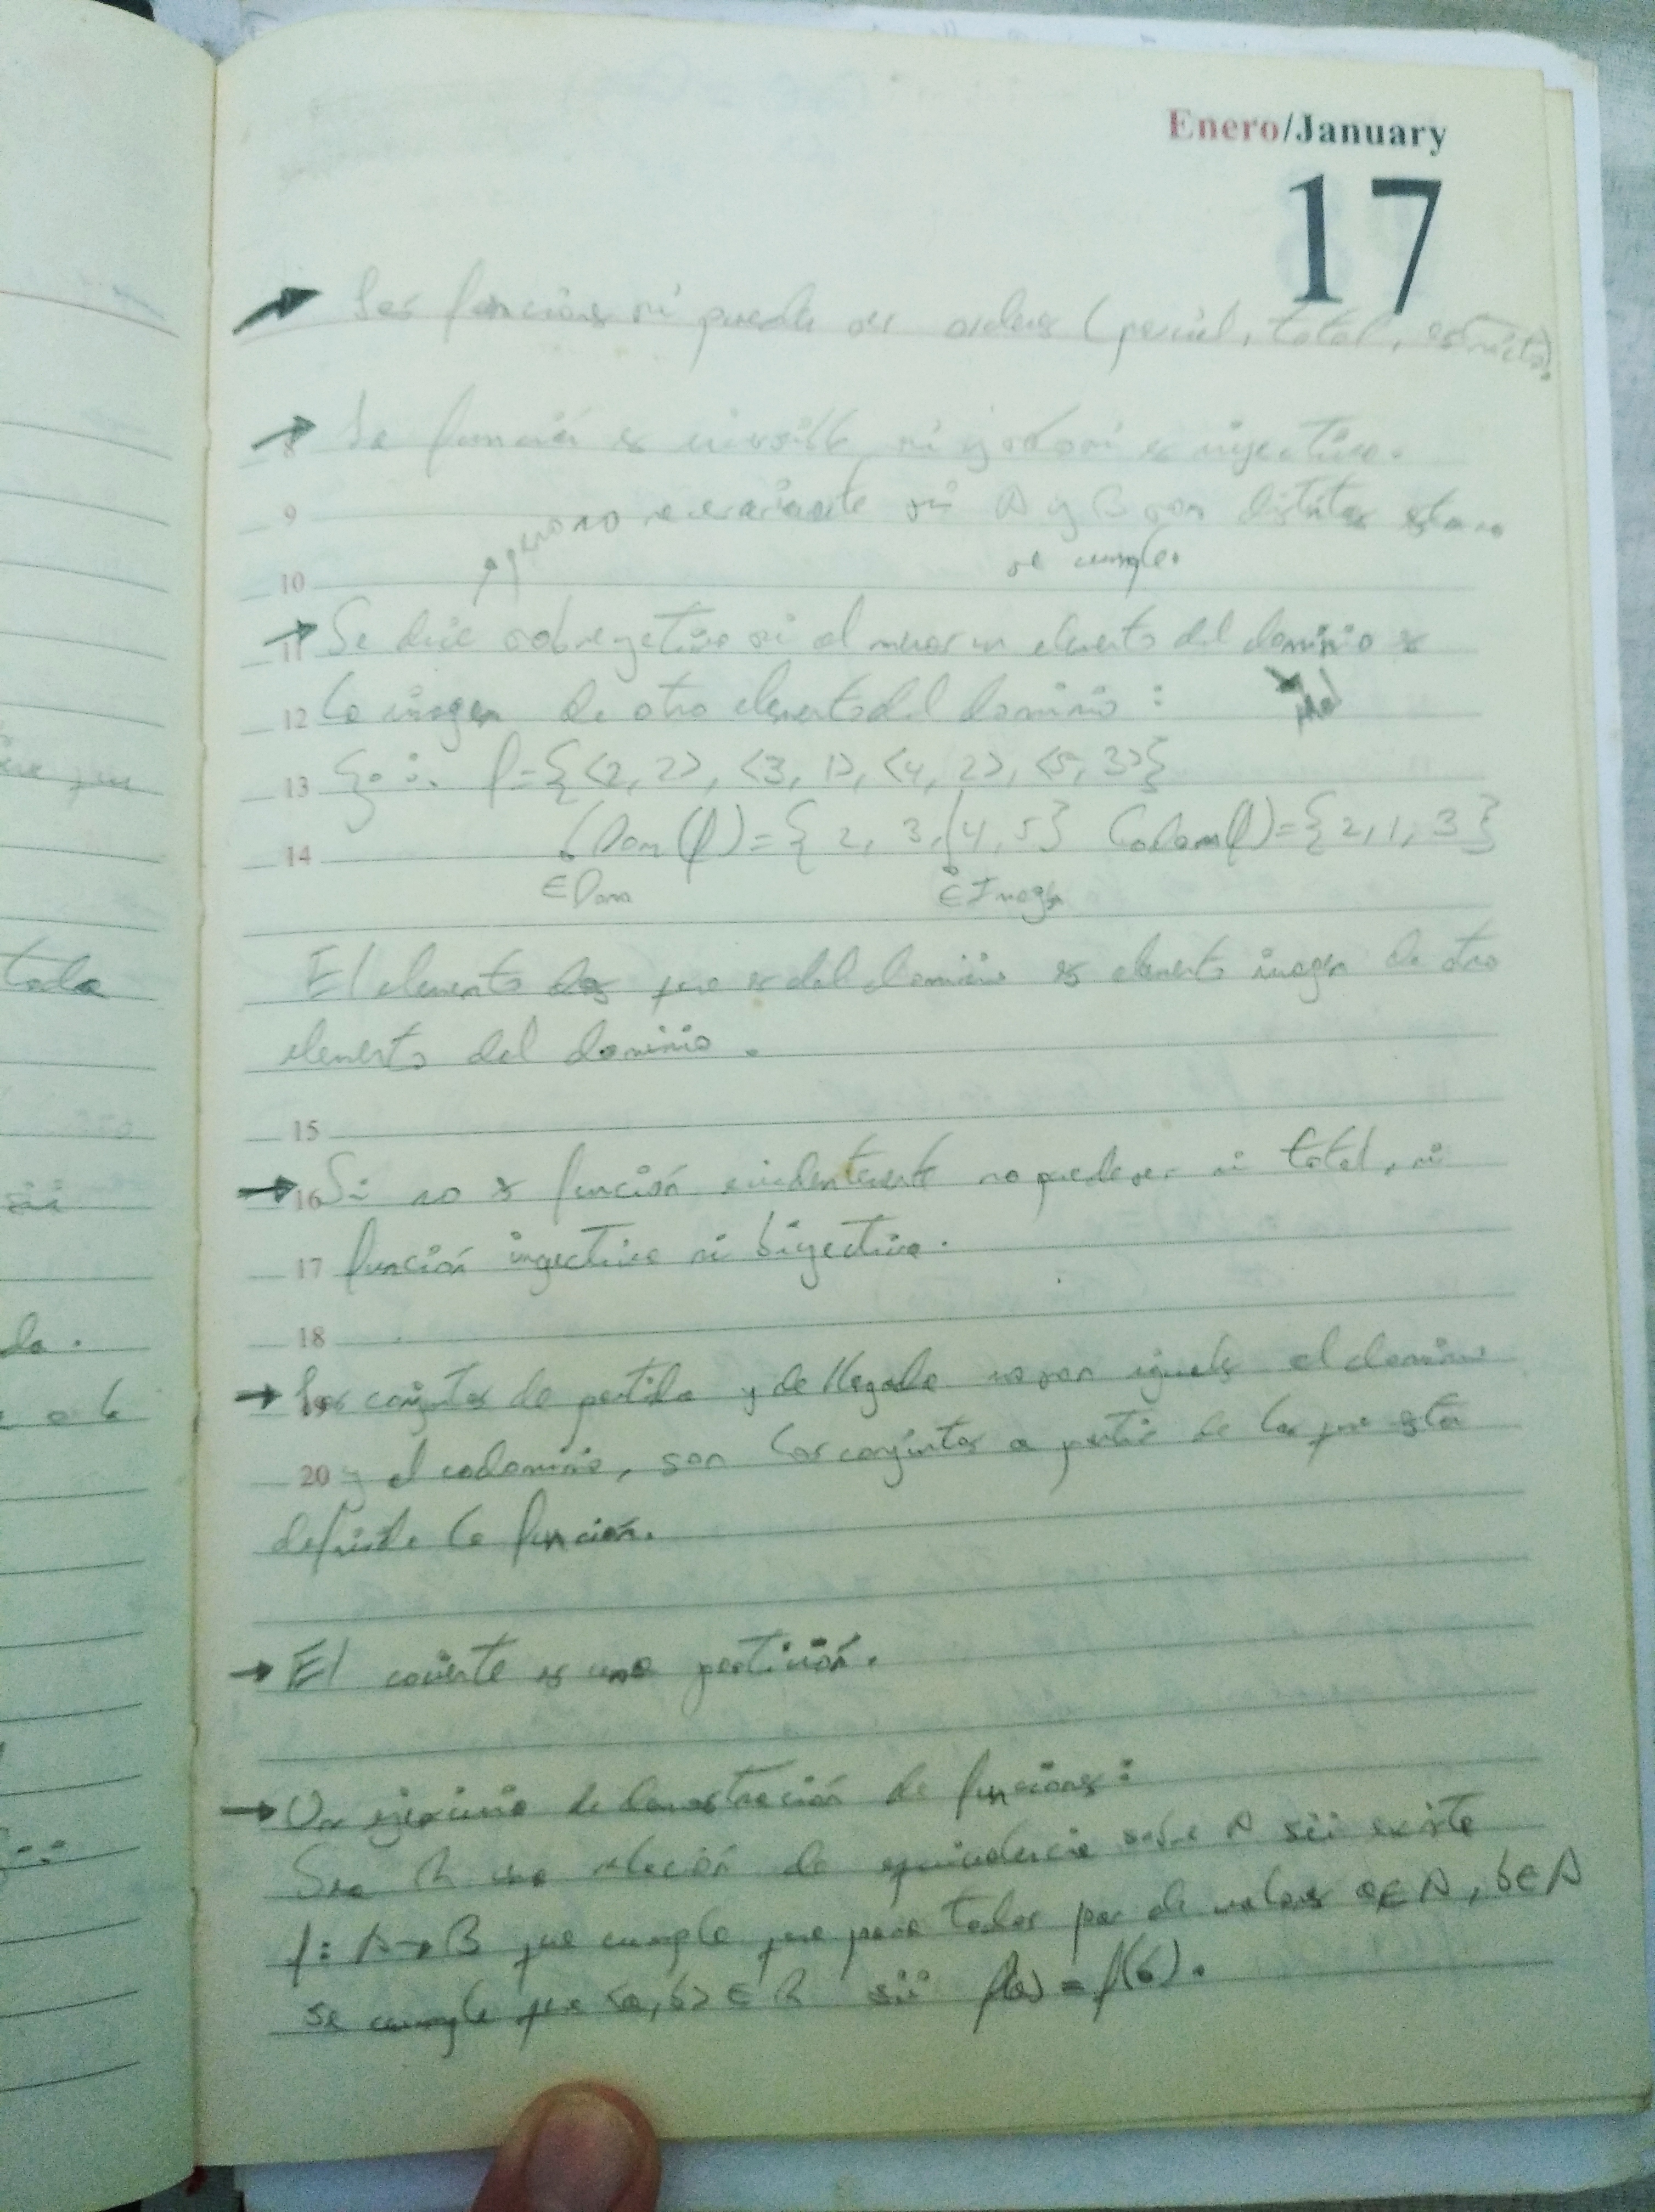 Enero/January
17
Las funciones si puede ser ordenes (parcial, total, estricto).
8 La función es invertible si y solo si es inyectiva.
9 pero no necesariamente si A y B son distintos esta no
10 se cumple.
11 Se dice sobreyectiva si al menos un elemento del dominio es
12 la imagen de otro elemento del dominio : Mal
13 Ej.: f={<2, 2>, <3, 1>, <4, 2>, <5, 3>}
14 Dom(f)={ 2, 3, 4, 5} Codom(f)={2, 1, 3}
∈ Dom ∈ Imagen
El elemento dos que es del dominio es elemento imagen de otro
elemento del dominio .
15
16 Si no es función evidentemente no puede ser ni total, ni
17 función inyectiva ni biyectiva.
18
19 Los conjuntos de partida y de llegada no son iguales al dominio
20 y el codominio, son los conjuntos a partir de los que esta
definida la función.
El cociente es una partición.
Un ejercicio de demostración de funciones:
Sea R una relación de equivalencia sobre A sii existe
f: A→B que cumple que para todos par de valores a∈A, b∈A
se cumple que <a, b> ∈ R sii f(a) = f(b).
toda
sii
da.